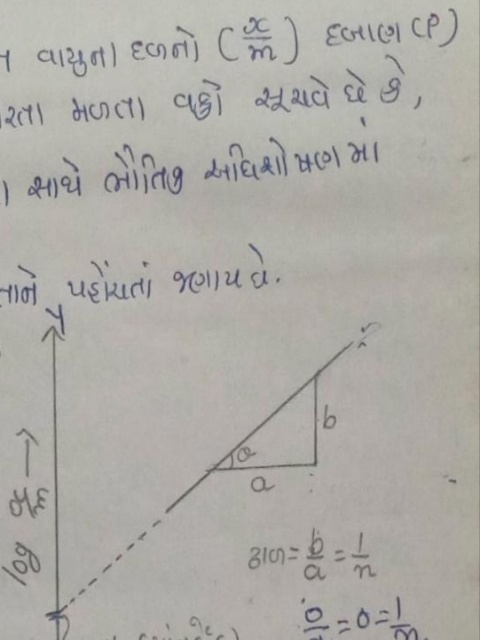 વાયુના દળનો (x/m) દબાણ (P)
મળતા વક્રો સૂચવે છે કે,
સાથે ભૌતિક અધિશોષણમાં
પહોંચતાં જણાય છે.
b
θ
a
log x/m →
ઢાળ = b/a = 1/n
0 = 1